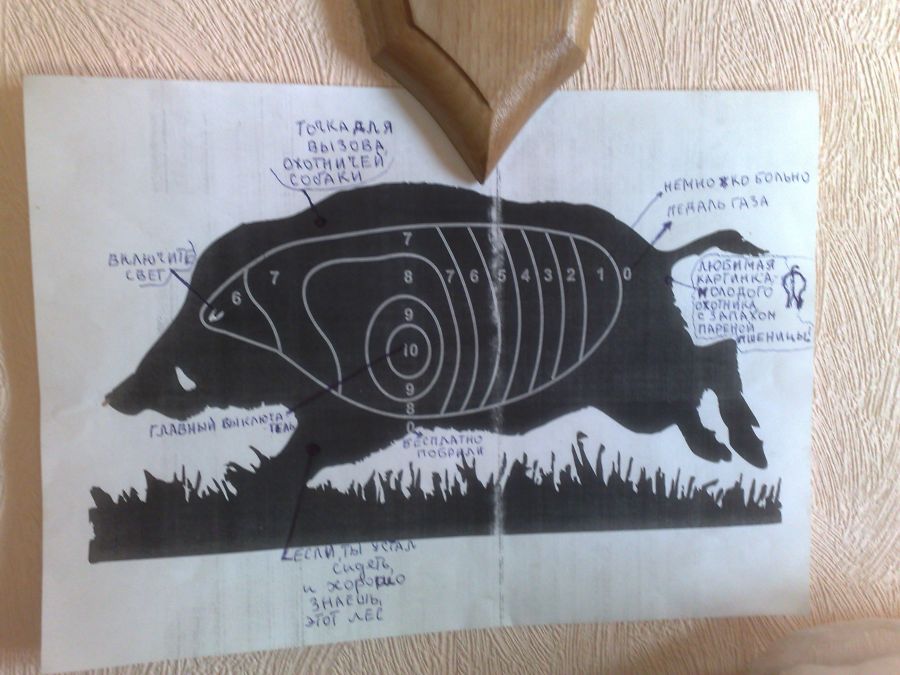 ТОЧКА ДЛЯ
ВЫЗОВА
ОХОТНИЧЕЙ
СОБАКИ
НЕМНОЖКО БОЛЬНО
ПЕДАЛЬ ГАЗА
ВКЛЮЧИТЕ
СВЕТ
ЛЮБИМАЯ
КАРТИНКА
МОЛОДОГО
ОХОТНИКА
С ЗАПАХОМ
ПАРЕНОЙ
ПШЕНИЦЫ
7
6 7 8 7 6 5 4 3 2 1 0
9
10
9
8
ГЛАВНЫЙ ВЫКЛЮЧА-
ТЕЛЬ
БЕСПЛАТНО
ПОБРИЛИ
ЕСЛИ ТЫ УСТАЛ
сидеть,
и хорошо
ЗНАЕШЬ
ЭТОТ ЛЕС